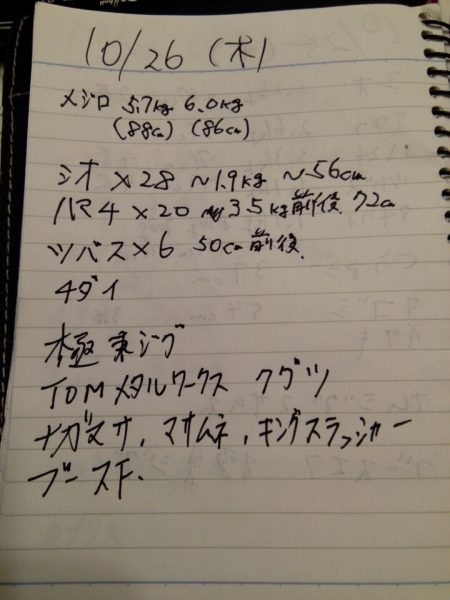 10/26 (木)
メジロ 5.7kg 6.0kg
(88cm) (86cm)
シオ ×28 ~1.9kg ~56cm
ハマチ ×20 3.5kg前後 72cm
ツバス×6 50cm前後
チダイ
極東ジグ
TOMメタルワークス クグツ
ナガマサ, マサムネ, キングスラッシャー
ブースF.